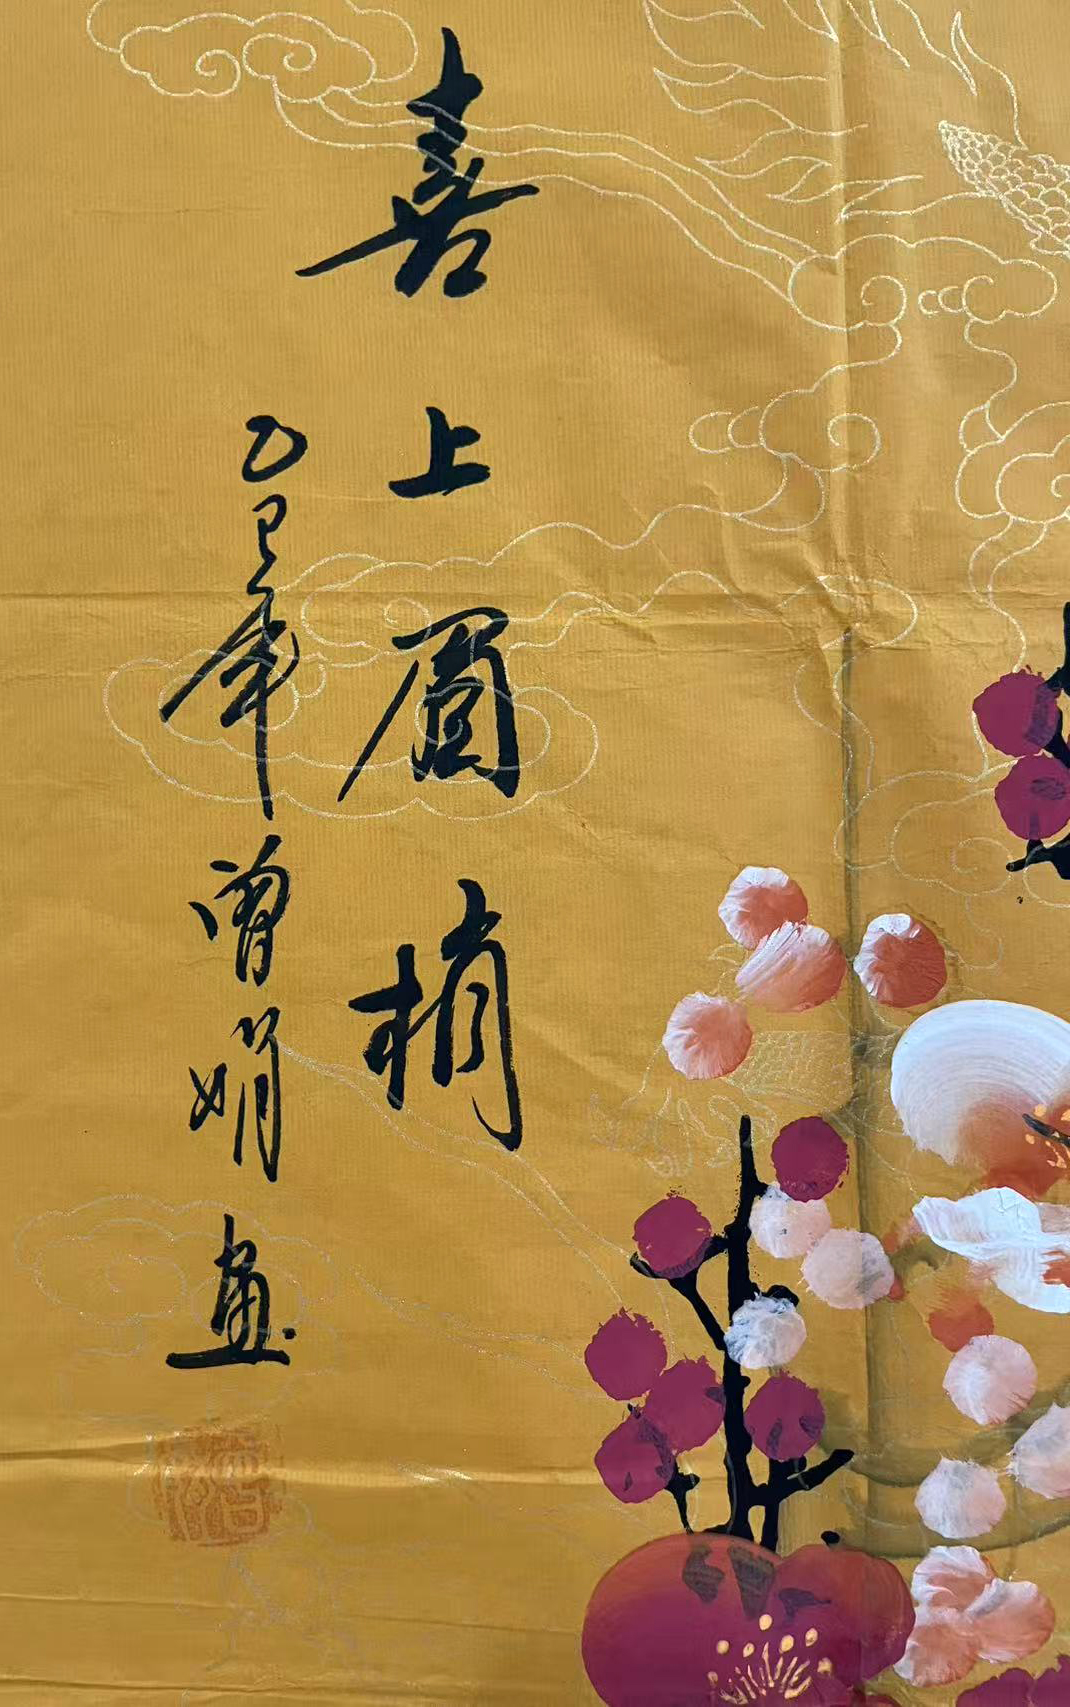 喜上眉梢
乙巳年曾娟画